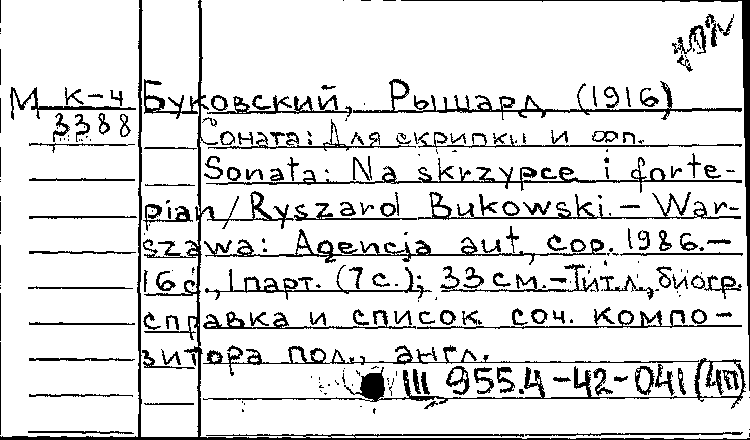 702
М К-4 Буковский, Рышард (1916)
3388 Соната: Для скрипки и фп.
Sonata: Na skrzypce i forte-
pian/Ryszard Bukowski.- War-
szawa: Agencja aut., cop. 1986.-
16 с., 1 парт. (7 с.); 33 см.-Тит.л., биогр.
справка и список соч. компо-
зитора пол., англ.
III 955.4-42-041 (4П)